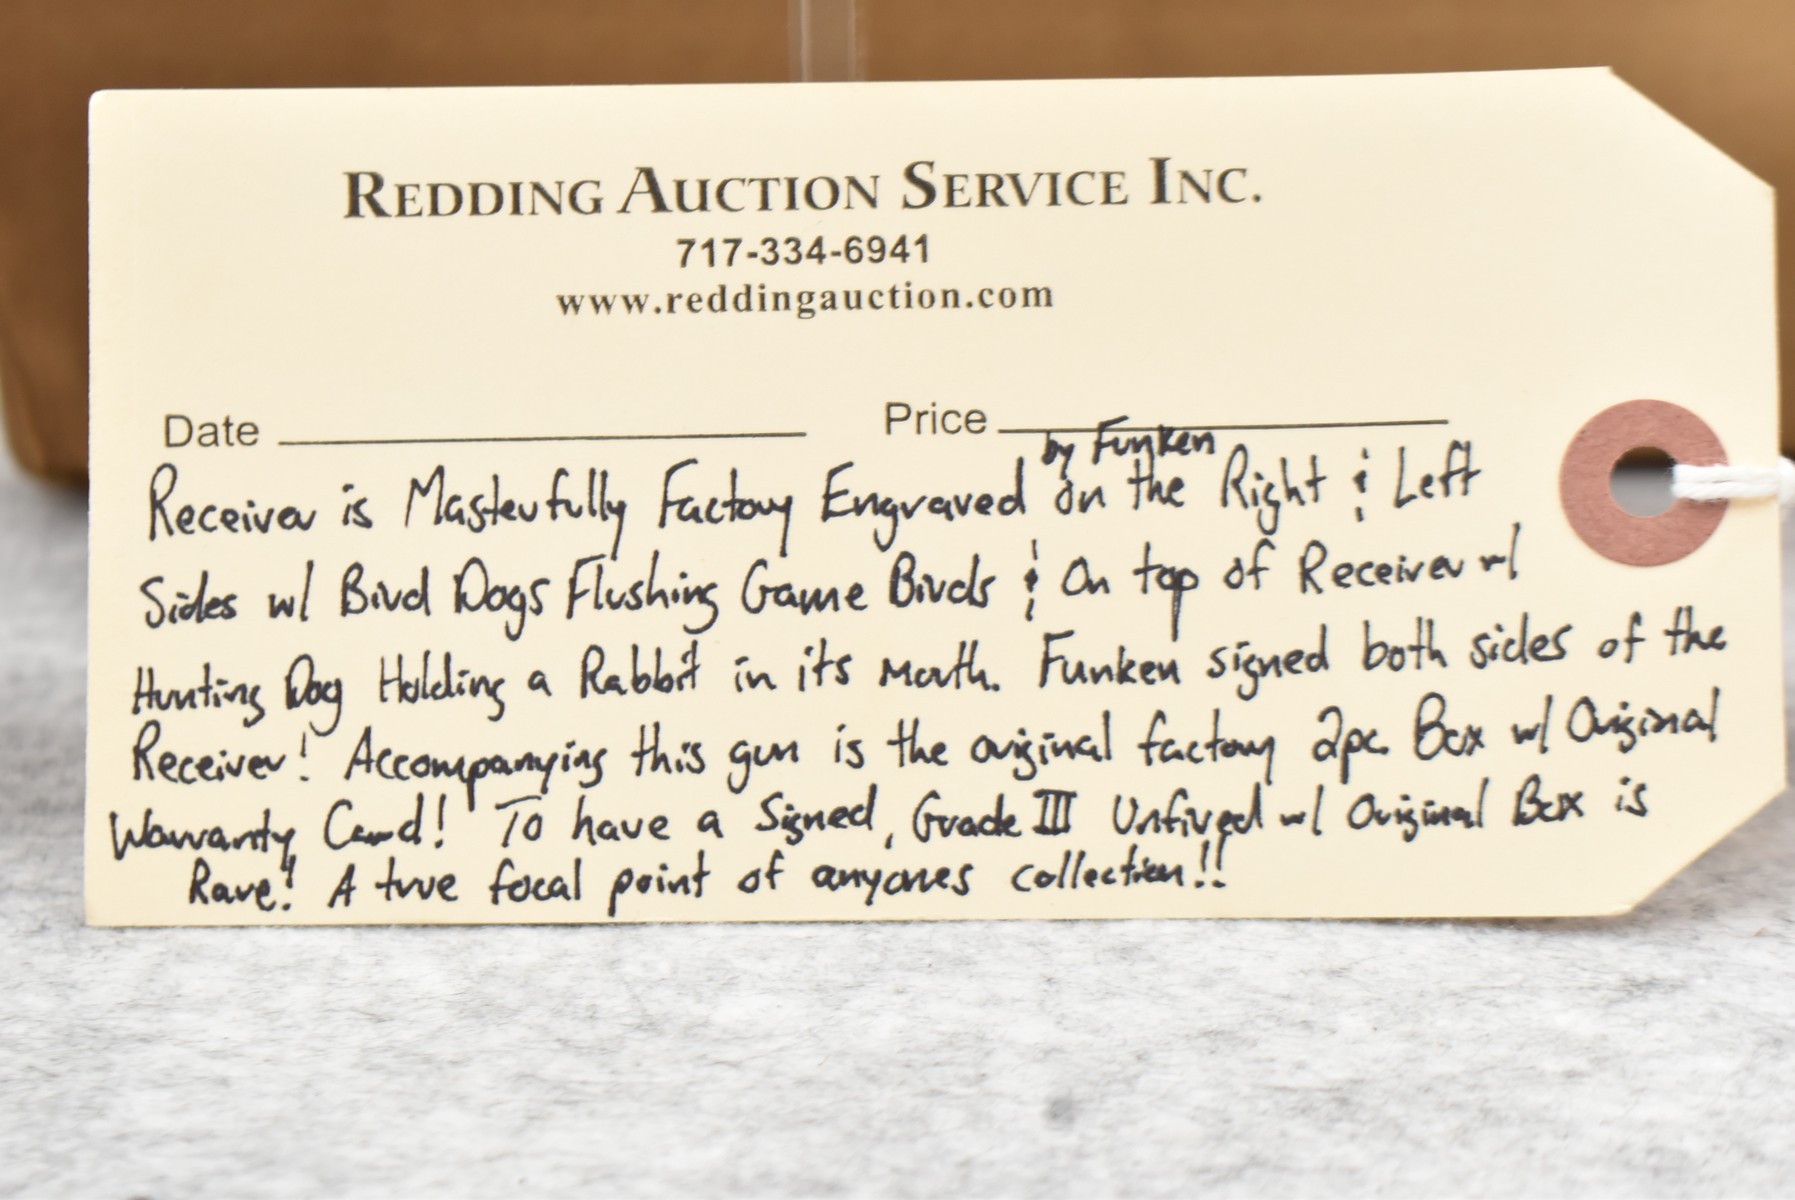 REDDING AUCTION SERVICE INC.
717-334-6941
www.reddingauction.com
Date Price
by Funken
Receiver is Masterfully Factory Engraved On the Right & Left
Sides w/ Bird Dogs Flushing Game Birds & On top of Receiver w/
Hunting Dog Holding a Rabbit in its Mouth. Funken signed both sides of the
Receiver! Accompanying this gun is the original factory 2pc. Box w/ Original
Warranty Card! To have a Signed, Grade III Unfired w/ Original Box is
Rare! A true focal point of anyones collection!!